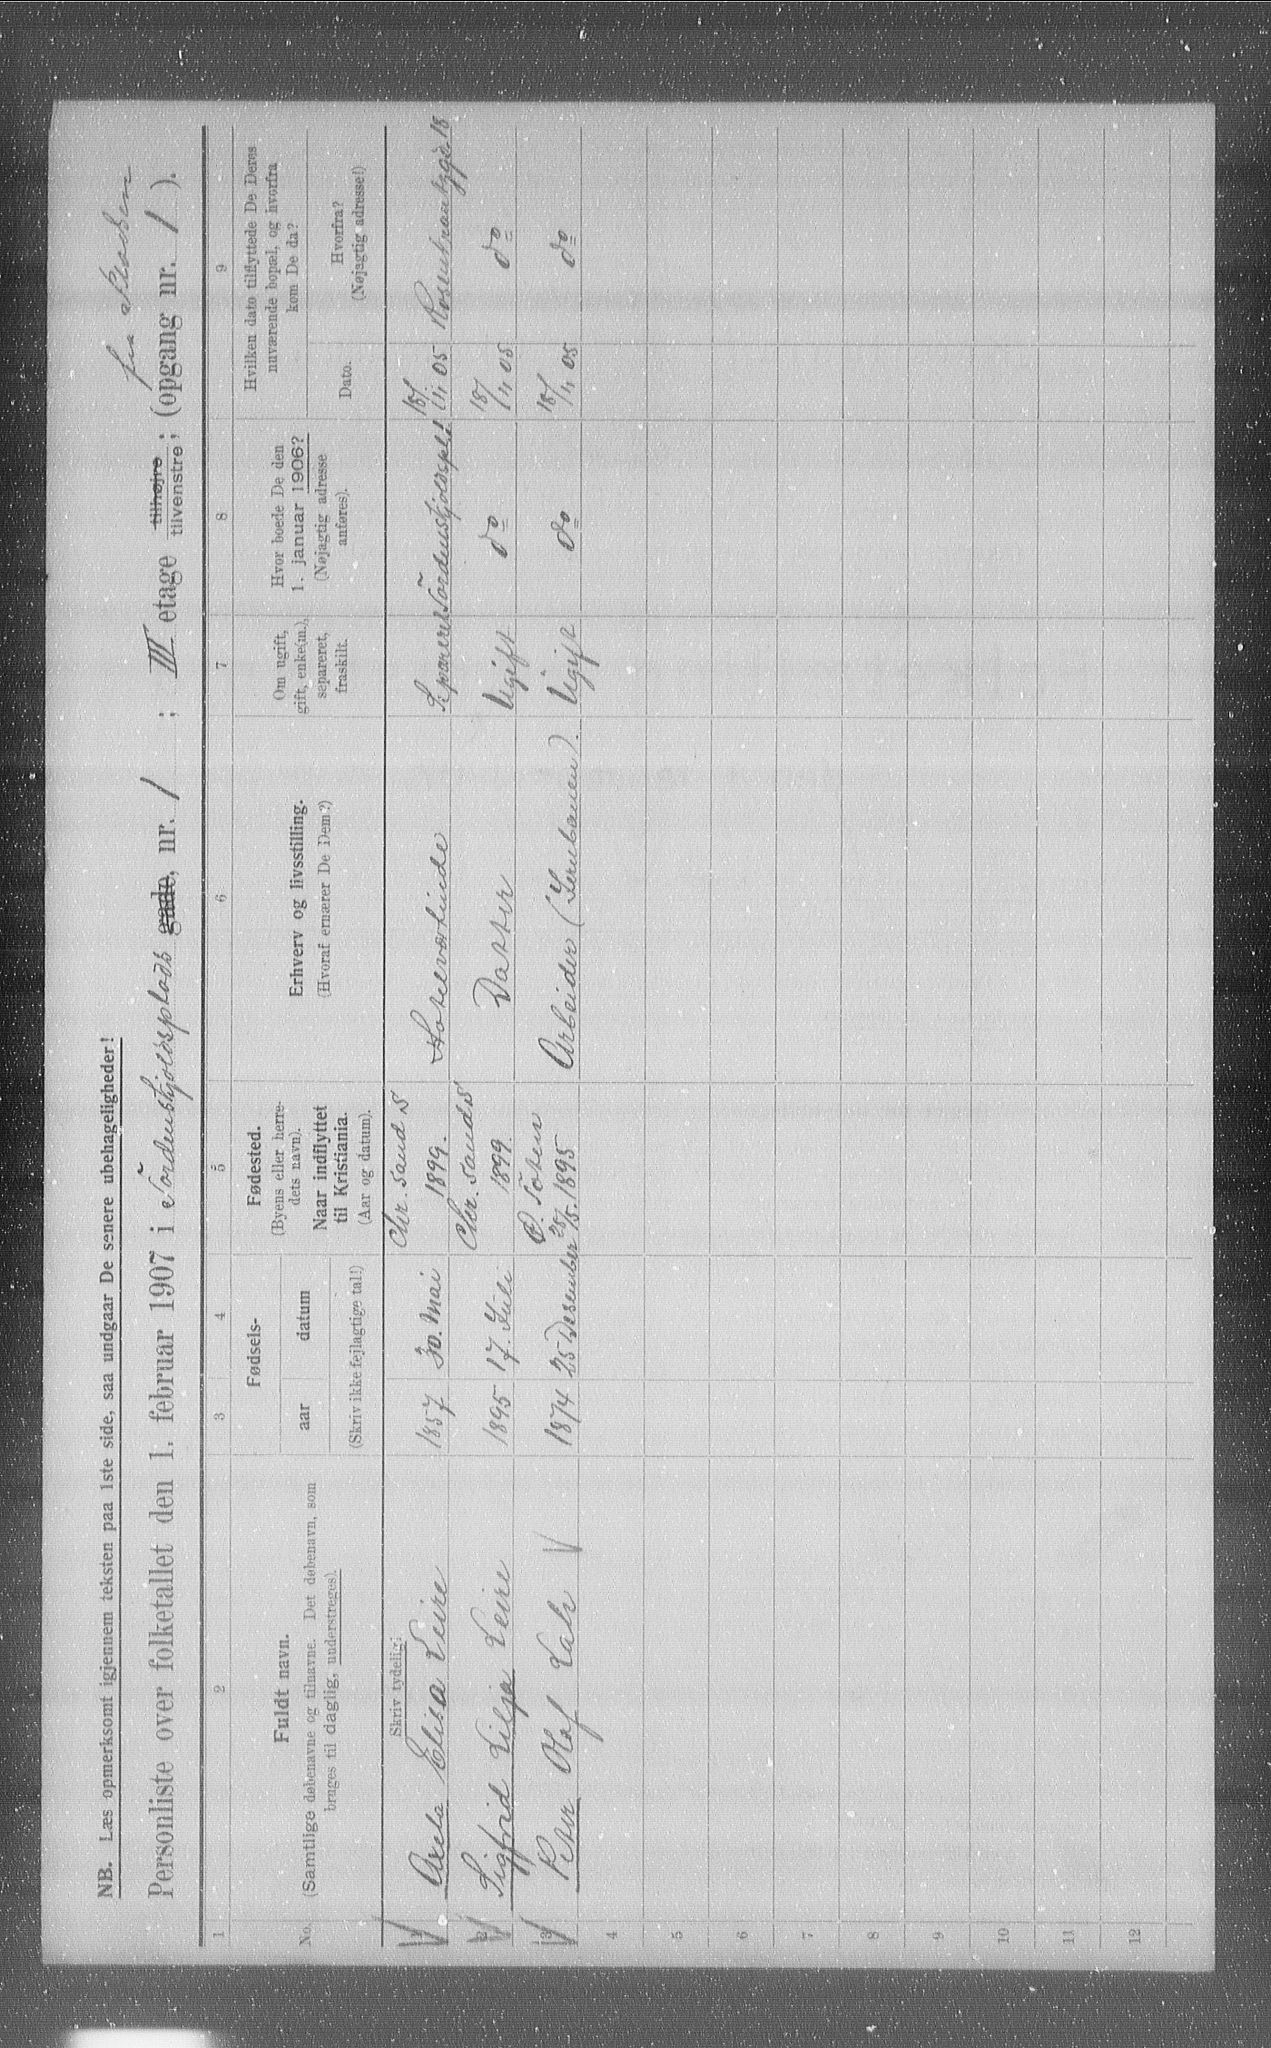 NB. Læs opmerksomt igjennem teksten paa 1ste side, saa undgaar De senere ubehageligheder!
fra
Personliste over folketallet den 1. februar 1907 i Tordenskjoldsplads gade, nr. 1 ; III etage tilhøjre tilvenstre; (opgang nr. 1 ).
1 2 3 4 5 6 7 8 9
No.
Fuldt navn.
(Samtlige døbenavne og tilnavne. Det døbenavn, som
bruges til daglig, understreges).
Fødsels-
aar datum
(Skriv ikke fejlagtige tal!)
Fødested.
(Byens eller herre-
dets navn).
Naar indflyttet
til Kristiania.
(Aar og datum).
Erhverv og livsstilling.
(Hvoraf ernærer De Dem?)
Om ugift,
gift, enke(m.),
separeret,
fraskilt.
Hvor boede De den
1. januar 1906?
(Nøjagtig adresse
anføres).
Hvilken dato tilflyttede De Deres
nuværende bopæl, og hvorfra
kom De da?
Dato.
Hvorfra?
(Nøjagtig adresse!)
Skriv tydelig:
1 Axela Elisa Leire 1857 30. Mai Chr. sand S 1899. Hotelvertinde Separeret Tordenskjoldspl. 1 18/11 05 Rosenkrantzgd 18
2 Sigfrid Lilja Leire 1895 17. Juli Chr. sand S 1899. Datter Ugift do 18/11 05 do
3 Peter Olaf 1874 25 Desember Ø. Toten 28/5. 1895 Arbeider (Jernbanen). Ugift do 18/11 05 do
4
5
6
7
8
9
10
11
12